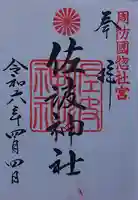 周防國惣社宮
奉拝
佐波神社
令和六年四月四日